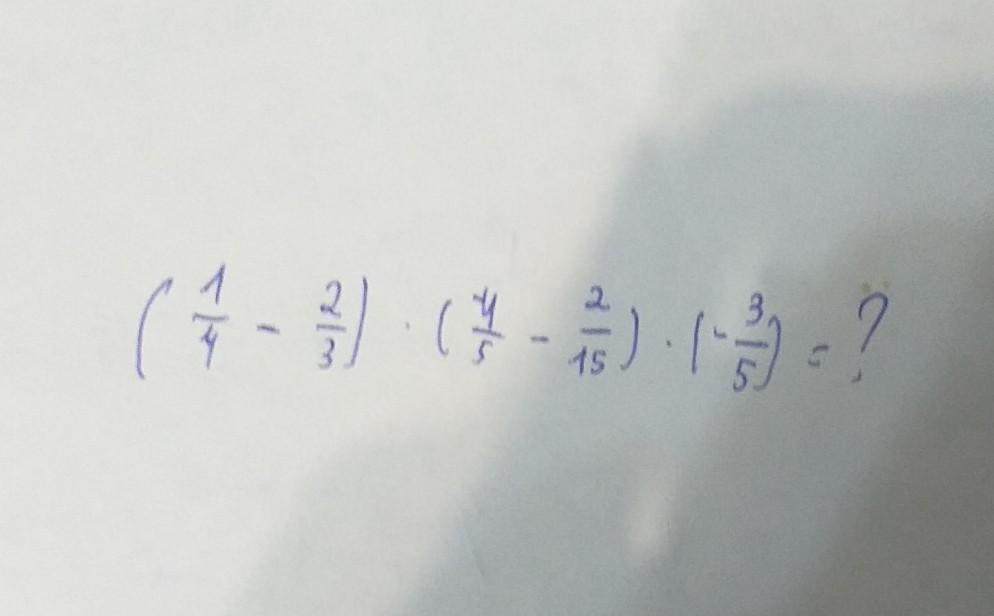 (1/4 - 2/3) · (4/5 - 2/15) · (-3/5) = ?